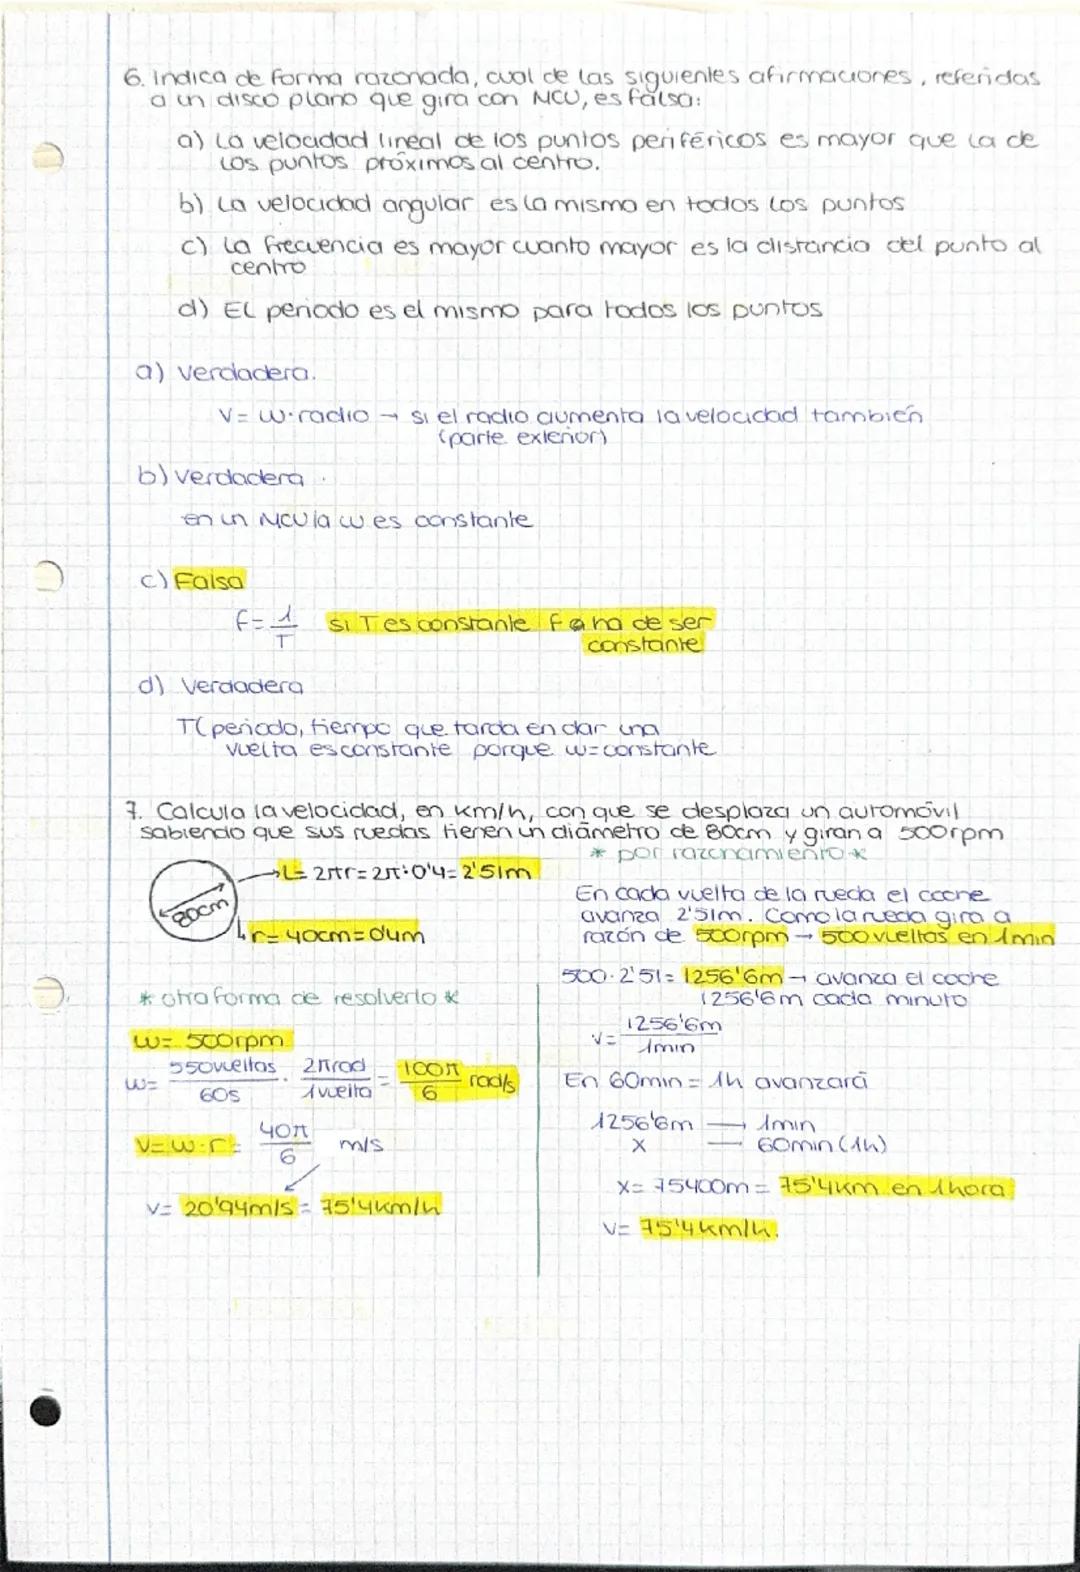 6. Indica de forma razonada, cual de las siguientes afirmaciones, referidas
a un disco plano que gira con MCU, es falsa:
a) La velocidad lineal de los puntos periféricos es mayor que la de
los puntos próximos al centro.
b) La velocidad angular es la misma en todos los puntos
c) La frecuencia es mayor cuanto mayor es la distancia del punto al
centro
d) El periodo es el mismo para todos los puntos
a) Verdadera.
V= ω·radio → si el radio aumenta la velocidad también
(parte exterior)
b) Verdadera.
en un MCU la ω es constante
c) Falsa
f= 1/T si T es constante f ha de ser
constante
d) Verdadera
T(periodo, tiempo que tarda en dar una
vuelta es constante porque ω=constante
7. Calcula la velocidad, en km/h, con que se desplaza un automóvil
sabiendo que sus ruedas tienen un diámetro de 80cm y giran a 500rpm
80cm
→L= 2πr= 2π·0'4= 2'51m
r= 40cm=0'4m
* otra forma de resolverlo *
ω= 500rpm
ω= 550vueltas/60s · 2πrad/1vuelta = 100π/6 rad/s
V=ω·r= 40π/6 m/s
V= 20'94m/s= 75'4km/h
* por razonamiento *
En cada vuelta de la rueda el coche
avanza 2'51m. Como la rueda gira a
razón de 500rpm → 500 vueltas en 1min
500·2'51= 1256'6m → avanza el coche
1256'6m cada minuto
V= 1256'6m/1min
En 60min= 1h avanzará
1256'6m → 1min
x — 60min (1h)
x= 75400m= 75'4km en 1hora
V= 75'4km/h.